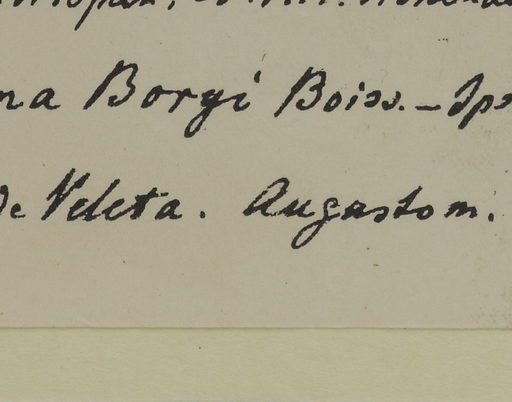 na Boryi Boiss. – Sps
de Veleta. Augusto m.